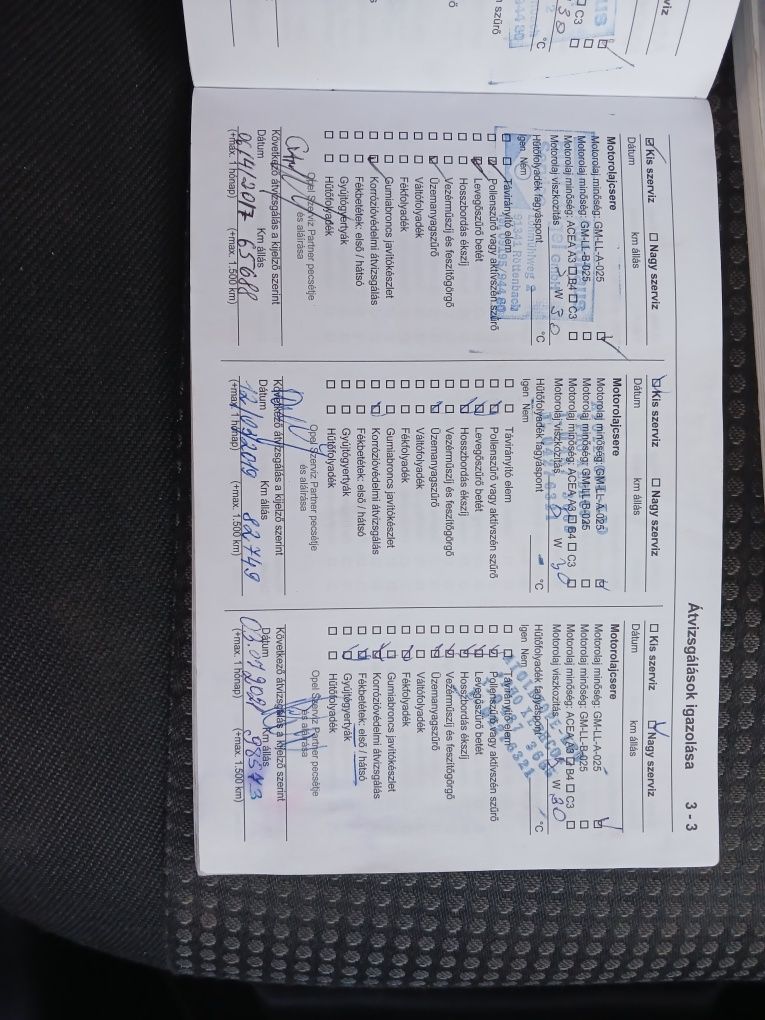 Átvizsgálások igazolása 3 - 3
☑ Kis szerviz ☐ Nagy szerviz
Dátum km állás
Motorolajcsere
Motorolaj minőség: GM-LL-A-025 ☑
Motorolaj minőség: GM-LL-B-025 ☐
Motorolaj minőség: ACEA A3 ☐ B4 ☐ C3 ☐
Motorolaj viszkozitás W 30
Hűtőfolyadék fagyáspont °C
Igen Nem
Távirányító elem
Pollenszűrő vagy aktívszén szűrő
Levegőszűrő betét
Hosszbordás ékszíj
Vezérműszíj és feszítőgörgő
Üzemanyagszűrő
Váltófolyadék
Fékfolyadék
Gumiabroncs javítókészlet
Korrózióvédelmi átvizsgálás
Fékbetétek: első / hátsó
Gyújtógyertyák
Hűtőfolyadék
Opel Szerviz Partner pecsétje
és aláírása
Következő átvizsgálás a kijelző szerint
Dátum Km állás
65688
(+max. 1 hónap) (+max. 1.500 km)
91341 Röttenbach
☑ Kis szerviz ☐ Nagy szerviz
Dátum km állás
Motorolajcsere
Motorolaj minőség: GM-LL-A-025 ☑
Motorolaj minőség: GM-LL-B-025 ☐
Motorolaj minőség: ACEA A3 ☐ B4 ☐ C3 ☐
Motorolaj viszkozitás W 30
Hűtőfolyadék fagyáspont - °C
Igen Nem
Távirányító elem
Pollenszűrő vagy aktívszén szűrő
Levegőszűrő betét
Hosszbordás ékszíj
Vezérműszíj és feszítőgörgő
Üzemanyagszűrő
Váltófolyadék
Fékfolyadék
Gumiabroncs javítókészlet
Korrózióvédelmi átvizsgálás
Fékbetétek: első / hátsó
Gyújtógyertyák
Hűtőfolyadék
Opel Szerviz Partner pecsétje
és aláírása
Következő átvizsgálás a kijelző szerint
Dátum Km állás
82749
(+max. 1 hónap) (+max. 1.500 km)
☐ Kis szerviz ☑ Nagy szerviz
Dátum km állás
Motorolajcsere
Motorolaj minőség: GM-LL-A-025 ☑
Motorolaj minőség: GM-LL-B-025 ☐
Motorolaj minőség: ACEA A3 ☐ B4 ☐ C3 ☐
Motorolaj viszkozitás W 30
Hűtőfolyadék fagyáspont °C
Igen Nem
Távirányító elem
Pollenszűrő vagy aktívszén szűrő
Levegőszűrő betét
Hosszbordás ékszíj
Vezérműszíj és feszítőgörgő
Üzemanyagszűrő
Váltófolyadék
Fékfolyadék
Gumiabroncs javítókészlet
Korrózióvédelmi átvizsgálás
Fékbetétek: első / hátsó
Gyújtógyertyák
Hűtőfolyadék
Opel Szerviz Partner pecsétje
és aláírása
Következő átvizsgálás a kijelző szerint
Dátum Km állás
98543
(+max. 1 hónap) (+max. 1.500 km)